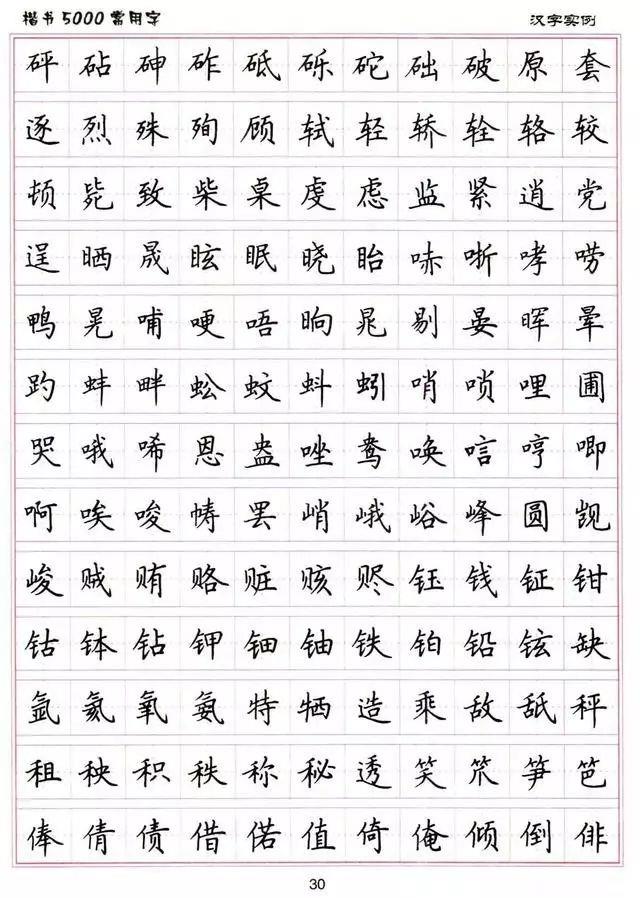 楷书5000常用字 汉字实例
砰砧砷砟砥砾砣础破原套
逐烈殊殉顾轼轻轿辁辂较
顿毙致柴桌虔虑监紧逍党
逞晒晟眩眠晓眙唪哳哮唠
鸭晃哺哽唔晌晁剔晏晖晕
趵蚌畔蚣蚊蚪蚓哨唢哩圃
哭哦唏恩盎唑鸯唤唁哼唧
啊唉唆帱罢峭峨峪峰圆觊
峻贼贿赂赃赅赆钰钱钲钳
钴钵钻钾钿铀铁铂铅铉缺
氩氦氧氨特牺造乘敌舐秤
租秧积秩称秘透笑笊笋笆
俸倩债借偌值倚俺倾倒俳
30